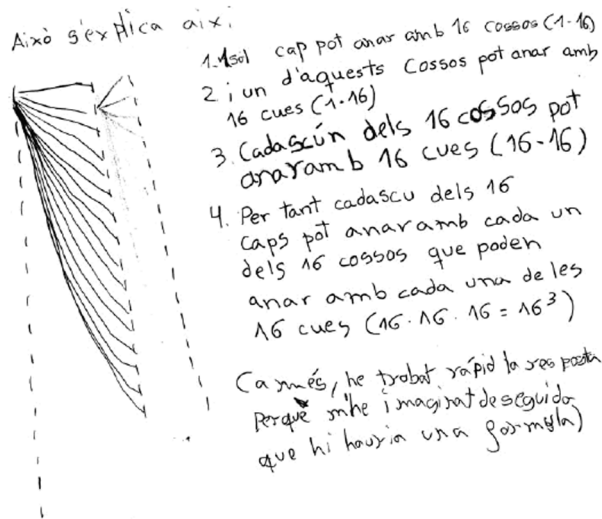 Això s'explica així:
1. 1 sol cap pot anar amb 16 cossos (1·16)
2 i un d'aquests cossos pot anar amb
16 cues (1·16)
3. Cadascún dels 16 cossos pot
anar amb 16 cues (16·16)
4. Per tant cadascu dels 16
caps pot anar amb cada un
dels 16 cossos que poden
anar amb cada una de les
16 cues (16·16·16 = 16³)
(a més, he trobat ràpid la resposta
perquè m'he imaginat deseguida
que hi hauria una formula)